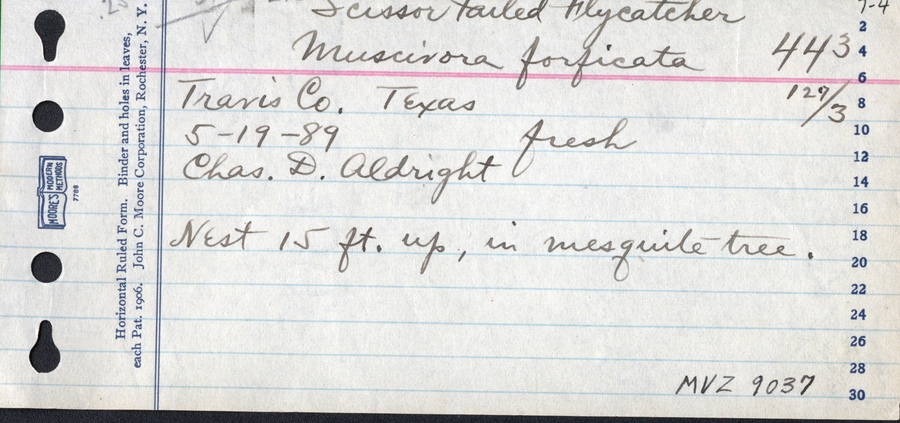 Scissor Tailed Flycatcher
Muscivora forficata 443
Travis Co. Texas 129/3
5-19-89 fresh
Chas. D. Aldright
Nest 15 ft. up, in mesquite tree.
MVZ 9037
2
4
6
8
10
12
14
16
18
20
22
24
26
28
30
Horizontal Ruled Form. Binder and holes in leaves,
each Pat. 1906. John C. Moore Corporation, Rochester, N. Y.
MOORE'S MODERN METHODS
7708